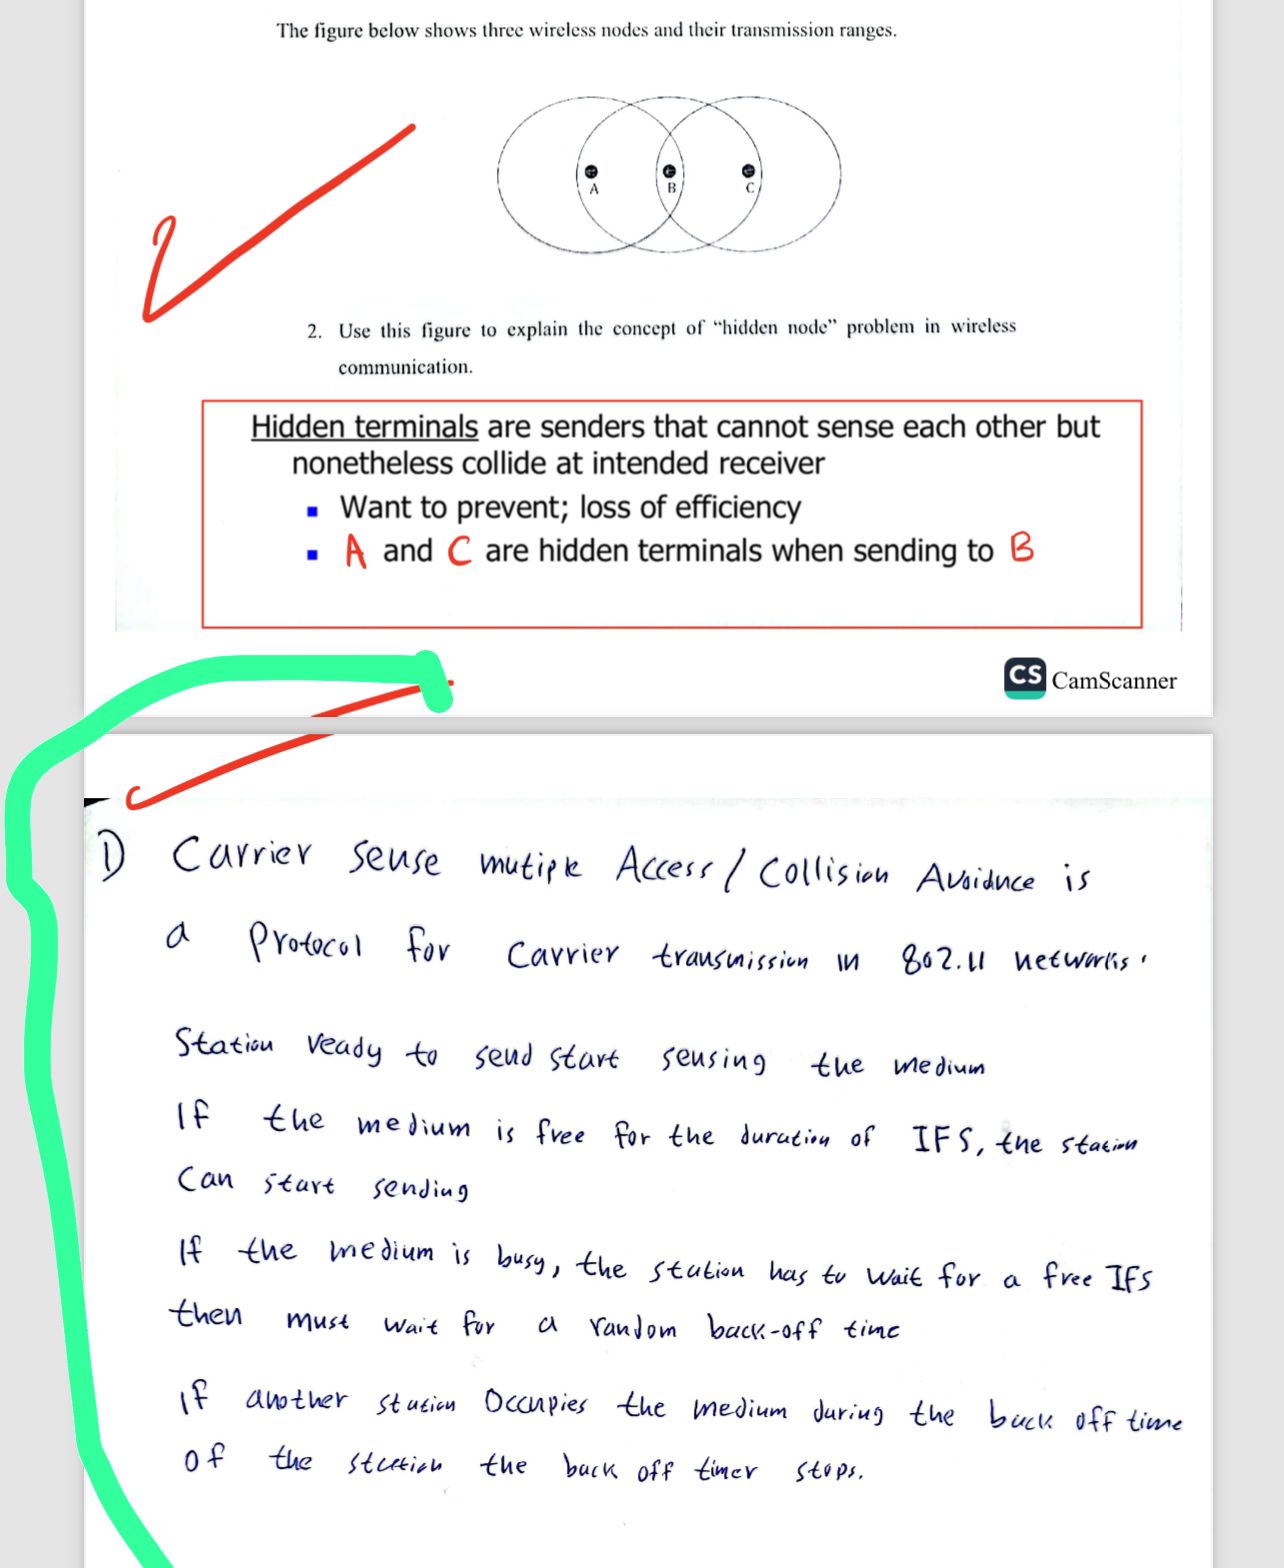 The figure below shows three wireless nodes and their transmission ranges.
A B C
2. Use this figure to explain the concept of “hidden node” problem in wireless
communication.
Hidden terminals are senders that cannot sense each other but
nonetheless collide at intended receiver
▪ Want to prevent; loss of efficiency
▪ A and C are hidden terminals when sending to B
CS CamScanner
1) Carrier sense mutiple Access / Collision Avoidnce is
a Protocol for Carrier transmission in 802.11 networks.
Station ready to send start sensing the medium
If the medium is free for the duration of IFS, the station
Can start sending
If the medium is busy, the station has to wait for a free IFS
then must wait for a random back-off time
if another station Occupies the medium during the back off time
of the station the back off timer stops.